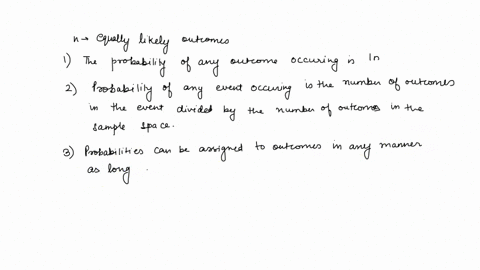 n → equally likely outcomes
1) The probability of any outcome occuring is 1n
2) Probability of any event occuring is the number of outcomes
in the event divided by the number of outcoms in the
sample space.
3) Probabilities can be assigned to outcomes in any manner
as long .